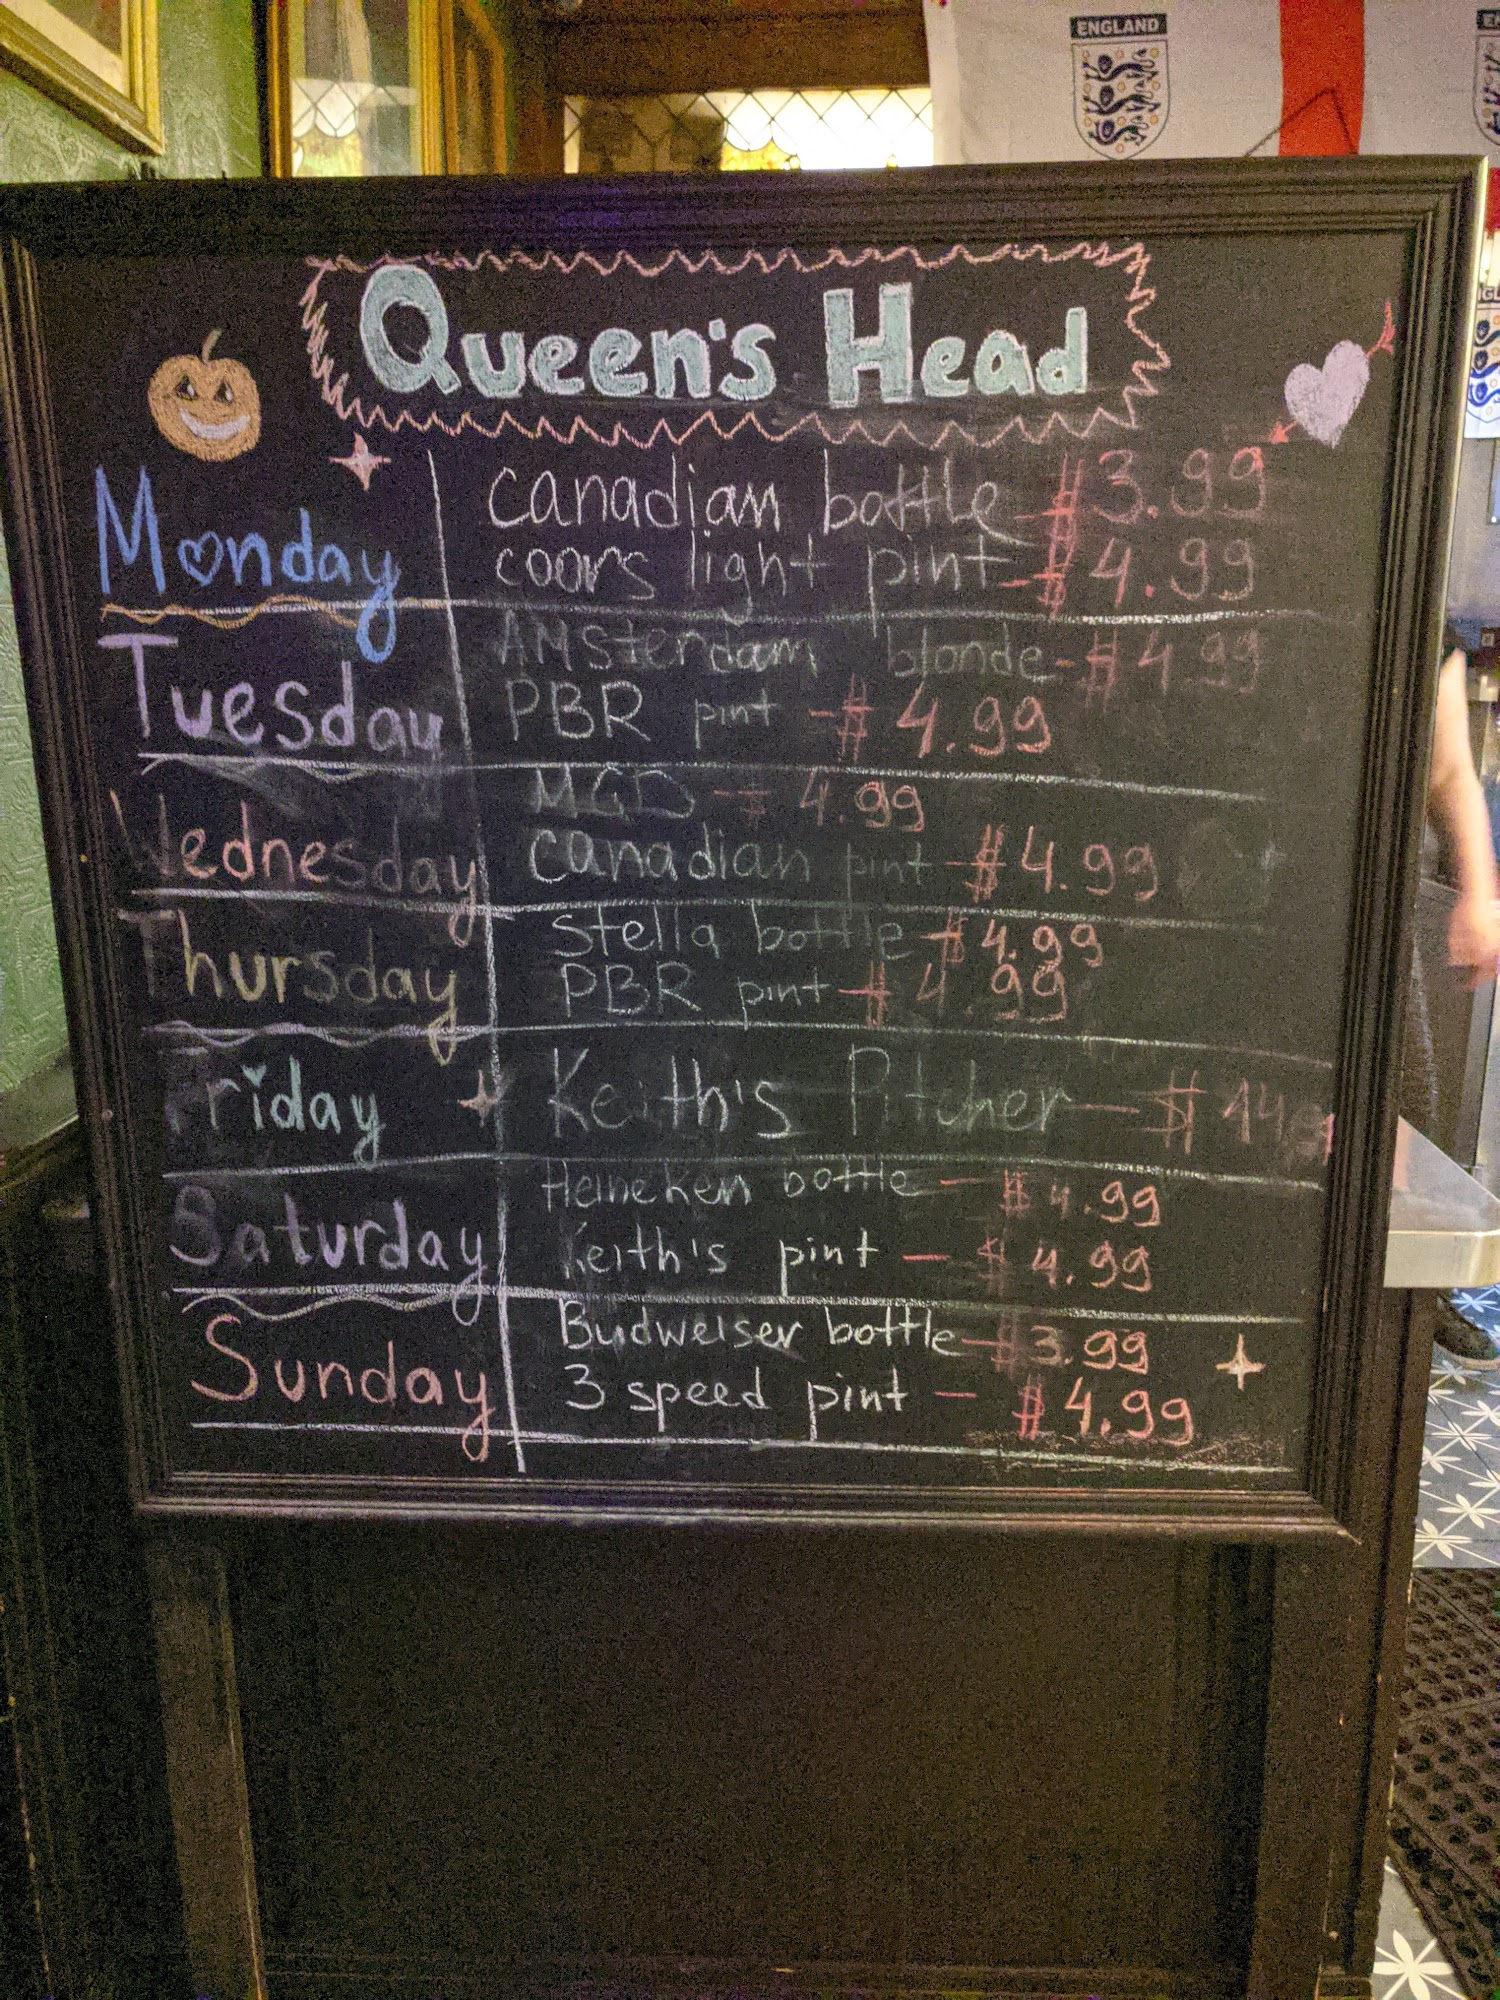 ENGLAND
Queen's Head
Monday
canadian bottle - $3.99
coors light pint - $4.99
Tuesday
AMsterdam blonde - $4.99
PBR pint - $4.99
Wednesday
MGD - $4.99
canadian pint - $4.99
Thursday
stella bottle - $4.99
PBR pint - $4.99
Friday
Keith's Pitcher - $14.9
Saturday
Heineken bottle - $4.99
Keith's pint - $4.99
Sunday
Budweiser bottle - $3.99
3 speed pint - $4.99